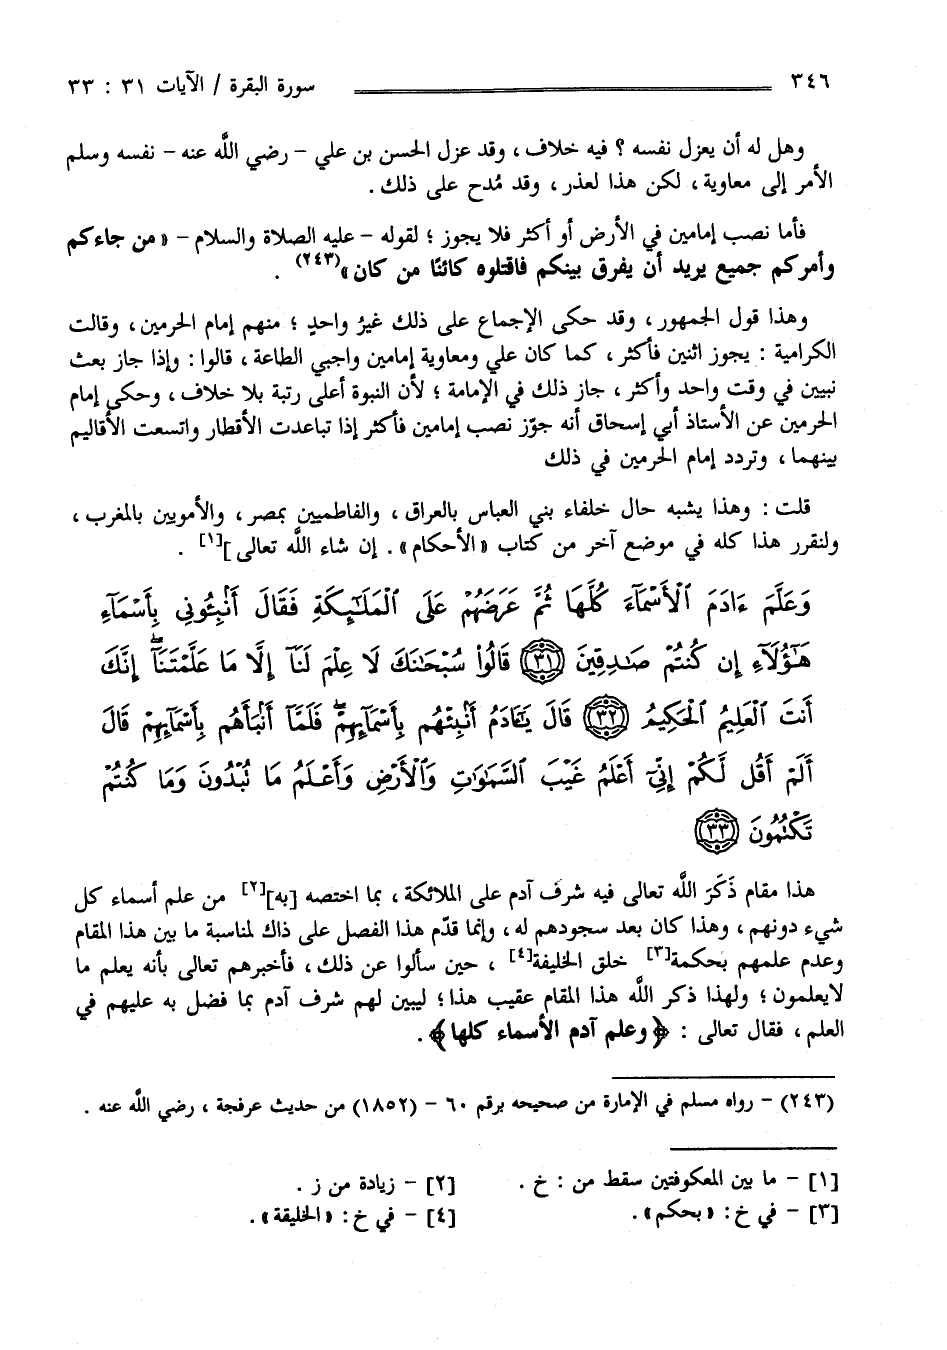 ٣٤٦ سورة البقرة / الآيات ٣١ : ٣٣
وهل له أن يعزل نفسه ؟ فيه خلاف ، وقد عزل الحسن بن علي – رضي اللَّه عنه – نفسه وسلم
الأمر إلى معاوية ، لكن هذا لعذر ، وقد مُدح على ذلك .
فأما نصب إمامين في الأرض أو أكثر فلا يجوز ؛ لقوله – عليه الصلاة والسلام – « من جاءكم
وأمركم جميع يريد أن يفرق بينكم فاقتلوه كائنًا من كان »(٢٤٣) .
وهذا قول الجمهور ، وقد حكى الإجماع على ذلك غيرُ واحدٍ ؛ منهم إمام الحرمين ، وقالت
الكرامية : يجوز اثنين فأكثر ، كما كان علي ومعاوية إمامين واجبي الطاعة ، قالوا : وإذا جاز بعث
نبيين في وقت واحد وأكثر ، جاز ذلك في الإمامة ؛ لأن النبوة أعلى رتبة بلا خلاف ، وحكى إمام
الحرمين عن الأستاذ أبي إسحاق أنه جوّز نصب إمامين فأكثر إذا تباعدت الأقطار واتسعت الأقاليم
بينهما ، وتردد إمام الحرمين في ذلك
قلت : وهذا يشبه حال خلفاء بني العباس بالعراق ، والفاطميين بمصر ، والأمويين بالمغرب ،
ولنقرر هذا كله في موضع آخر من كتاب « الأحكام » . إن شاء اللَّه تعالى ][١] .
وَعَلَّمَ ءَادَمَ ٱلْأَسْمَآءَ كُلَّهَا ثُمَّ عَرَضَهُمْ عَلَى ٱلْمَلَٰٓئِكَةِ فَقَالَ أَنۢبِـُٔونِى بِأَسْمَآءِ
هَٰٓؤُلَآءِ إِن كُنتُمْ صَٰدِقِينَ ٣١ قَالُوا۟ سُبْحَٰنَكَ لَا عِلْمَ لَنَآ إِلَّا مَا عَلَّمْتَنَآ ۖ إِنَّكَ
أَنتَ ٱلْعَلِيمُ ٱلْحَكِيمُ ٣٢ قَالَ يَٰٓـَٔادَمُ أَنۢبِئْهُم بِأَسْمَآئِهِمْ ۖ فَلَمَّآ أَنۢبَأَهُم بِأَسْمَآئِهِمْ قَالَ
أَلَمْ أَقُل لَّكُمْ إِنِّىٓ أَعْلَمُ غَيْبَ ٱلسَّمَٰوَٰتِ وَٱلْأَرْضِ وَأَعْلَمُ مَا تُبْدُونَ وَمَا كُنتُمْ
تَكْتُمُونَ ٣٣
هذا مقام ذَكَرَ اللَّه تعالى فيه شرف آدم على الملائكة ، بما اختصه [به][٢] من علم أسماء كل
شيء دونهم ، وهذا كان بعد سجودهم له ، وإنما قدّم هذا الفصل على ذاك لمناسبة ما بين هذا المقام
وعدم علمهم بحكمة[٣] خلق الخليفة[٤] ، حين سألوا عن ذلك ، فأخبرهم تعالى بأنه يعلم ما
لايعلمون ؛ ولهذا ذكر اللَّه هذا المقام عقيب هذا ؛ ليبين لهم شرف آدم بما فضل به عليهم في
العلم ، فقال تعالى : ﴿ وعلم آدم الأسماء كلها ﴾ .
(٢٤٣) – رواه مسلم في الإمارة من صحيحه برقم ٦٠ – (١٨٥٢) من حديث عرفجة ، رضي اللَّه عنه .
[١] – ما بين المعكوفتين سقط من : خ . [٢] – زيادة من ز .
[٣] – في خ : « بحكم » . [٤] – في خ : « الخليقة » .